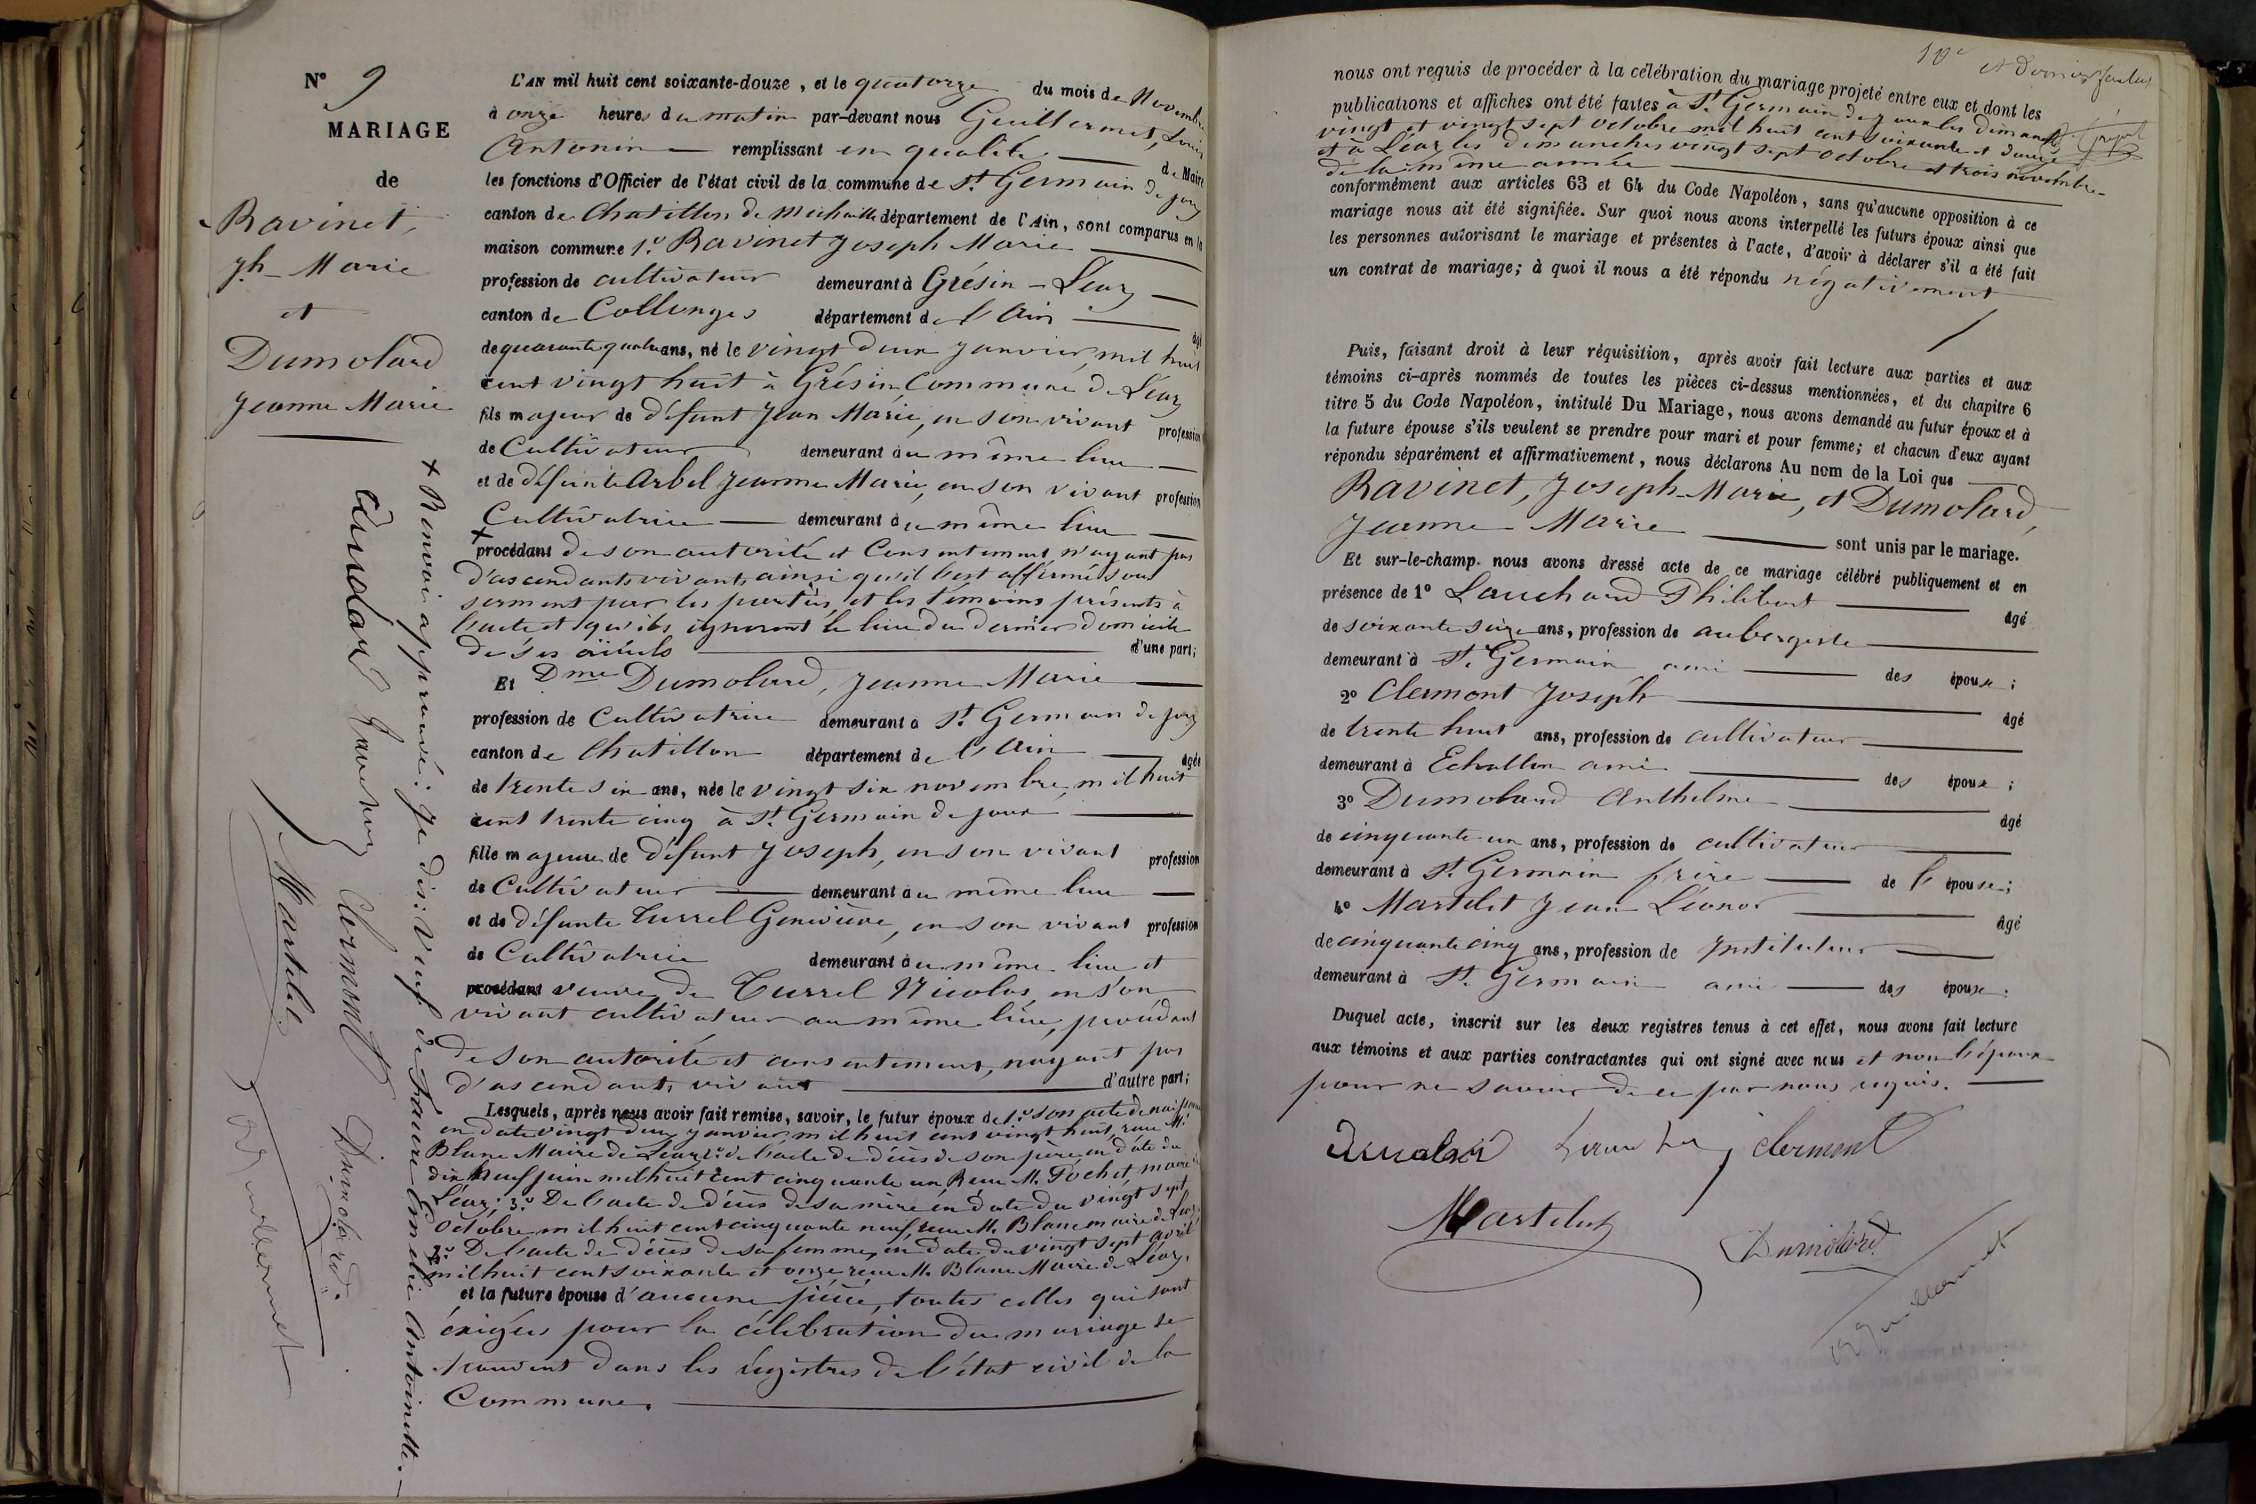 N° 9
MARIAGE
de
Ravinet,
Jh Marie
et
Dumolard
Jeanne Marie
L'AN mil huit cent soixante-douze, et le quatorze du mois de Novembre
à onze heures du matin par-devant nous Guillermet, Louis
Antonin remplissant en qualité de Maire
les fonctions d'Officier de l'état civil de la commune de St Germain de joux
canton de Chatillon de Michaille département de l'Ain, sont comparus en la
maison commune 1° Ravinet Joseph Marie
profession de cultivateur demeurant à Grésin - Léaz
canton de Collonges département de l'Ain âgé
de quarante quatre ans, né le vingt deux janvier, mil huit
cent vingt huit à Grésin, Commune de Léaz
fils majeur de défunt Jean Marie, en son vivant profession
de Cultivateur demeurant au même lieu
et de défunte Arbel Jeanne Marie, en son vivant profession
Cultivatrice demeurant au même lieu
+ procédant de son autorité et Consentement n'ayant pas
d'ascendants vivants ainsi qu'il l'est affirmé sous
serment par les parties, et les témoins présents à
l'acte et qu'ils ignorent le lieu du dernier domicile
de ses aïeuls d'une part;
Et Dme Dumolard, Jeanne Marie
profession de Cultivatrice demeurant à St Germain de joux
canton de Chatillon département de l'Ain âgée
de trente six ans, née le vingt six novembre, mil huit
cent trente cinq à St Germain de joux
fille majeure de défunt Joseph, en son vivant profession
de Cultivateur demeurant au même lieu
et de défunte Turrel Genevieve, en son vivant profession
de Cultivatrice demeurant au même lieu et
procédant veuve de Turrel Nicolas, en son
vivant cultivateur au même lieu, procédant
de son autorité et consentement, nayant pas
d'ascendants vivant d'autre part;
Lesquels, après nous avoir fait remise, savoir, le futur époux de 1° son acte de naissance
en date vingt deux janvier, mil huit cent vingt huit, reçu Mr
Blanc Maire de Léaz 2° de l'acte de décès de son père en date du
dix neuf juin mil huit cent cinquante un Reçu M. Pochet, maire de
Léaz; 3° De l'acte de décès de sa mère en date du vingt sept
Octobre mil huit cent cinquante neuf, reçu M. Blanc maire de Léaz
4° De l'acte de décès de sa femme, en date du vingt sept avril
mil huit cent soixante et onze reçu M. Blanc Maire de Léaz,
et la future épouse d'aucune pièce, toutes celles qui sont
éxigées pour la célébration du mariage se
trouvent dans les régistres de l'état civil de la
Commune.
+ Renvoi approuvé: Je dis: veuf de Favre Emelie Antoinette.
Dumolard Clermont Dumolard
Martelet
Guillermet
10e et Dernier feuillet
nous ont requis de procéder à la célébration du mariage projeté entre eux et dont les
publications et affiches ont été faites à St Germain de joux les dimanches
vingt et vingt sept octobre mil huit cent soixante et douze
et à Léaz les dimanches vingt sept octobre et trois novembre
de la même année
conformément aux articles 63 et 64 du Code Napoléon, sans qu'aucune opposition à ce
mariage nous ait été signifiée. Sur quoi nous avons interpellé les futurs époux ainsi que
les personnes autorisant le mariage et présentes à l'acte, d'avoir à déclarer s'il a été fait
un contrat de mariage; à quoi il nous a été répondu négativement
Puis, faisant droit à leur réquisition, après avoir fait lecture aux parties et aux
témoins ci-après nommés de toutes les pièces ci-dessus mentionnées, et du chapitre 6
titre 5 du Code Napoléon, intitulé Du Mariage, nous avons demandé au futur époux et à
la future épouse s'ils veulent se prendre pour mari et pour femme; et chacun d'eux ayant
répondu séparément et affirmativement, nous déclarons Au nom de la Loi que
Ravinet, Joseph-Marie, et Dumolard,
Jeanne Marie sont unis par le mariage.
Et sur-le-champ. nous avons dressé acte de ce mariage célébré publiquement et en
présence de 1° Lauchard Philibert âgé
de soixante seize ans, profession de aubergiste
demeurant à St Germain ami des époux;
2° Clermont Joseph âgé
de trente huit ans, profession de cultivateur
demeurant à Echallon ami des époux;
3° Dumolard Anthelme âgé
de cinquante un ans, profession de cultivateur
demeurant à St Germain frère de l'épouse;
4° Martelet Jean Léonor âgé
de cinquante cinq ans, profession de Instituteur
demeurant à St Germain ami des époux.
Duquel acte, inscrit sur les deux registres tenus à cet effet, nous avons fait lecture
aux témoins et aux parties contractantes qui ont signé avec nous et non l'époux
pour ne savoir de ce par nous requis.
Dumolard Clermont
Martelet Dumolard
Guillermet